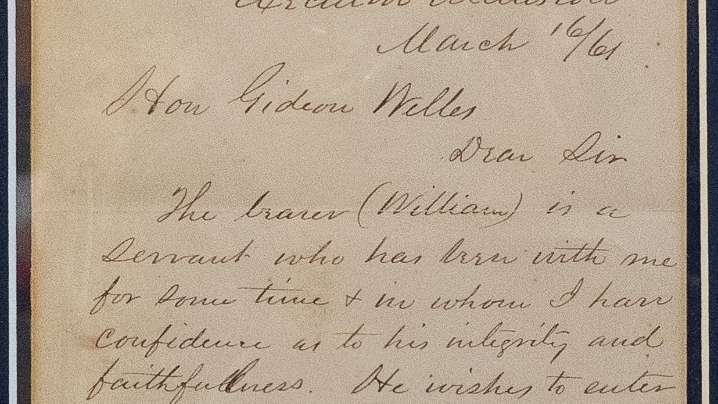 Executive Mansion
March 16/61
Hon Gideon Welles
Dear Sir
The bearer (William) is a
servant who has been with me
for some time & in whom I have
confidence as to his integrity and
faithfullness. He wishes to enter